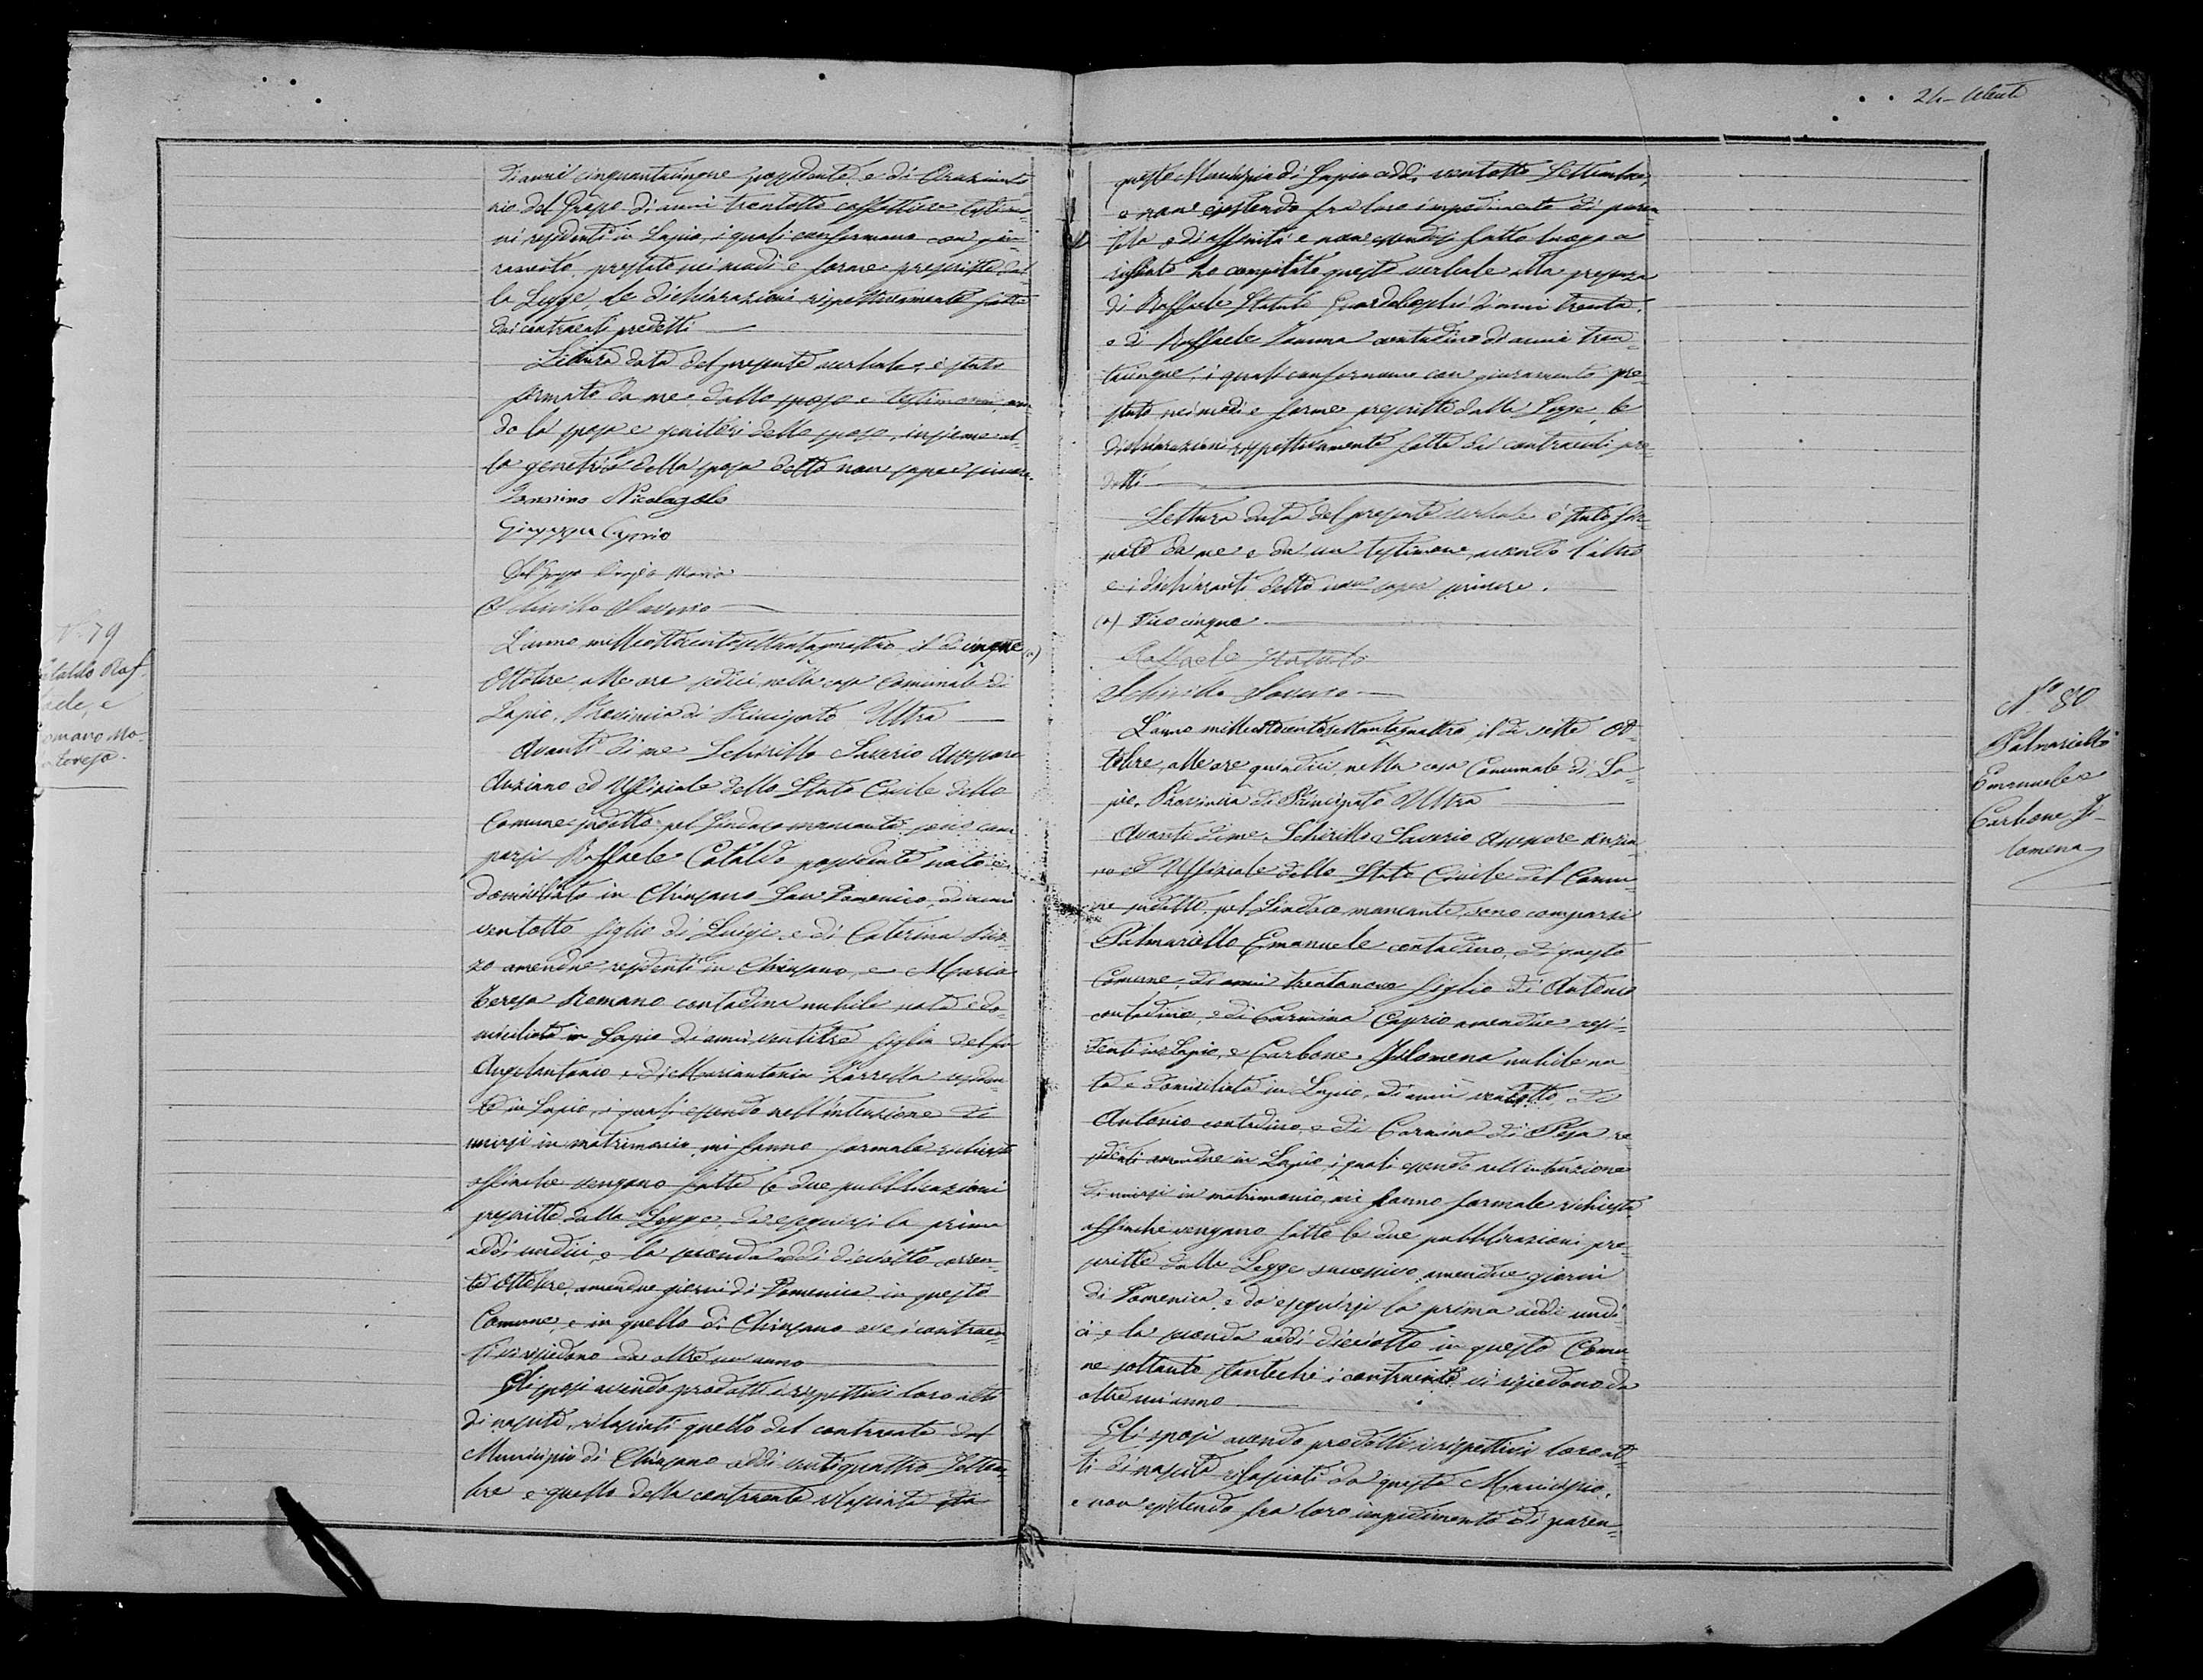 24 -
di anni cinquantacinque possidente, e di Orazio Ma-
rio del Grosso di anni trentotto caffettiere, testimo-
ni residenti in Lapio, i quali confermano con giu-
ramento, prestato nei modi e forme prescritte dal-
la Legge, le dichiarazioni rispettivamente fatte
dai contraenti predetti
Lettura data del presente verbale, è stato
firmato da me, dallo sposo e testimoni, aven-
do la sposa e genitori dello sposo, insieme al-
la genitrice della sposa detto non sapere scrivere.
Nicolangelo
Giuseppe Caprio
Del Grosso Orazio Maria
Schirillo Saverio
N. 79
Cataldo Raf-
faele, e
Romano Ma-
ria Teresa.
L'anno milleottocentosettantaquattro, il dì cinque (a)
Ottobre, alle ore sedici, nella casa Comunale di
Lapio, Provincia di Principato Ultra
Avanti di me Schirillo Saverio Assessore
Anziano ed Uffiziale dello Stato Civile dello
Comune sudetto, pel Sindaco mancante, sono com-
parsi Raffaele Cataldo possidente nato e
domiciliato in Chiusano San Domenico, di anni
ventotto figlio di Luigi, e di Caterina Riz-
zo amendue residenti in Chiusano, e Maria
Teresa Romano contadina nubile nata e do-
miciliata in Lapio di anni ventitre figlia del fu
Angelantonio, e di Mariantonia Zarrella residen-
te in Lapio, i quali essendo nell'intenzione di
unirsi in matrimonio, mi fanno formale richiesta
affinche vengano fatte le due pubblicazioni
prescritte dalla Legge, da eseguirsi la prima
addi undici, e la seconda addi dieciotto corren-
te Ottobre, amendue giorni di Domenica in questo
Comune, e in quello di Chiusano ove i contraen-
ti vi risiedono da oltre un anno
Gli sposi avendo prodotti i rispettivi loro atti
di nascita, rilasciati quello del contraente dal
Municipio di Chiusano addi ventiquattro Settem-
bre e quello della contraente rilasciato da
questo Municipio di Lapio addi ventotto Settembre,
e non esistendo fra loro impedimento di paren-
tela o di affinità e non essendosi fatto luogo a
rifiuto ho compilato questo verbale alla presenza
di Raffaele Statuto Guardaboschi di anni trenta,
e di Raffaele Iamma contadino di anni tren-
tacinque, i quali confermano con giuramento pre-
stato nei modi e forme prescritte dalla Legge, le
dichiarazioni rispettivamente fatte dai contraenti pre-
detti
Lettura data del presente verbale è stato fir-
mato da me e da un testimone, avendo l'altro
e i dichiaranti detto non saper scrivere.
(a) Dico cinque
Raffaele Statuto
Schirillo Saverio
N° 80
Palmariello
Emanuele e
Carbone Fi-
lomena
L'anno milleottocentosettantaquattro, il dì sette Ot-
tobre, alle ore quindici, nella casa Comunale di La-
pio, Provincia di Principato Ultra
Avanti di me, Schirillo Saverio Assessore Anzia-
no ed Uffiziale dello Stato Civile del Comu-
ne sudetto, pel Sindaco mancante, sono comparsi
Palmariello Emanuele contadino, di questo
Comune, di anni trentanove figlio di Antonio
contadino, e di Carmina Caprio amendue resi-
denti in Lapio, e Carbone Filomena nubile na-
ta e domiciliata in Lapio, di anni ventotto, di
Antonio contadino, e di Carmina di Pesa re-
sidenti amendue in Lapio, i quali essendo nell'intenzione
di unirsi in matrimonio, mi fanno formale richiesta
affinche vengano fatte le due pubblicazioni pre-
scritte dalla Legge successivo amendue giorni
di Domenica, e da eseguirsi la prima addi undi-
ci, e la seconda addi dieciotto in questo Comu-
ne soltanto stanteche i contraenti vi risiedono da
oltre un anno
Gli sposi avendo prodotti i rispettivi loro at-
ti di nascita rilasciati da questo Municipio,
e non esistendo fra loro impedimento di paren-